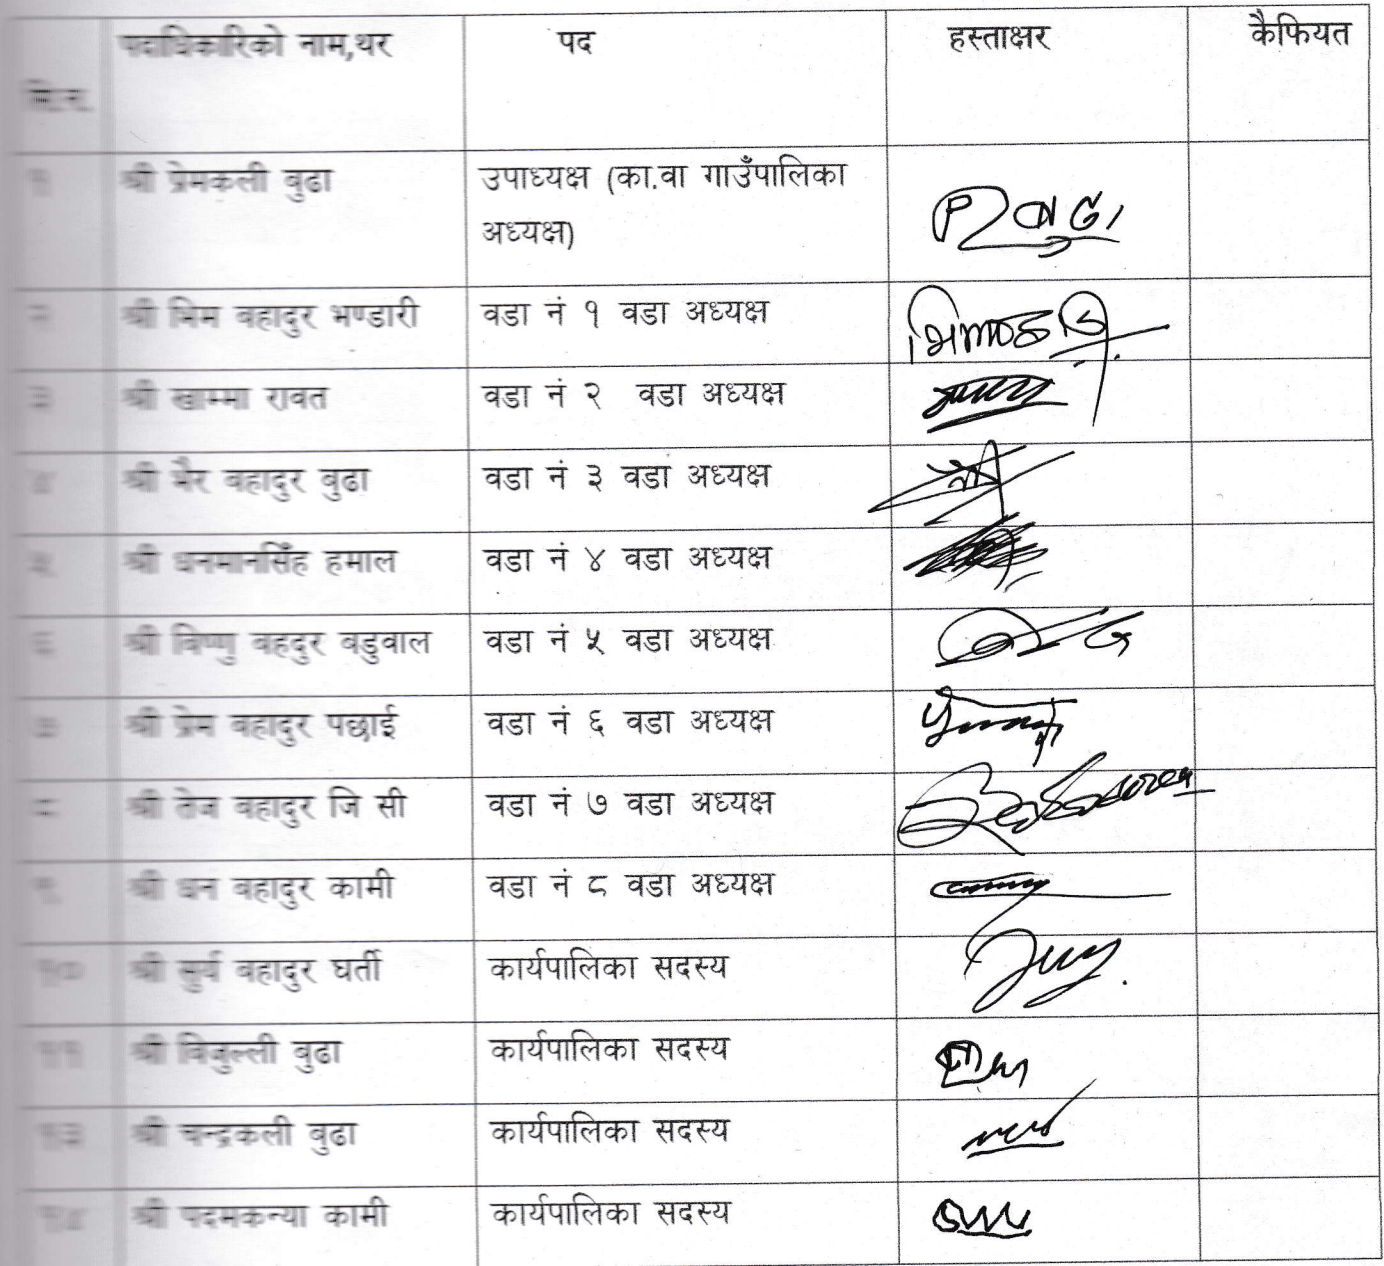 सि.न. पदाधिकारिको नाम,थर पद हस्ताक्षर कैफियत
१ श्री प्रेमकली बुढा उपाध्यक्ष (का.वा गाउँपालिका
अध्यक्ष)
२ श्री भिम बहादुर भण्डारी वडा नं १ वडा अध्यक्ष
३ श्री खाम्मा रावत वडा नं २ वडा अध्यक्ष
४ श्री भैर बहादुर बुढा वडा नं ३ वडा अध्यक्ष
५ श्री धनमानसिंह हमाल वडा नं ४ वडा अध्यक्ष
६ श्री विष्णु बहदुर बडुवाल वडा नं ५ वडा अध्यक्ष
७ श्री प्रेम बहादुर पछाई वडा नं ६ वडा अध्यक्ष
८ श्री तेज बहादुर जि सी वडा नं ७ वडा अध्यक्ष
९ श्री धन बहादुर कामी वडा नं ८ वडा अध्यक्ष
१० श्री सुर्य बहादुर घर्ती कार्यपालिका सदस्य
११ श्री विजुल्ली बुढा कार्यपालिका सदस्य
१३ श्री चन्द्रकली बुढा कार्यपालिका सदस्य
१४ श्री पदमकन्या कामी कार्यपालिका सदस्य